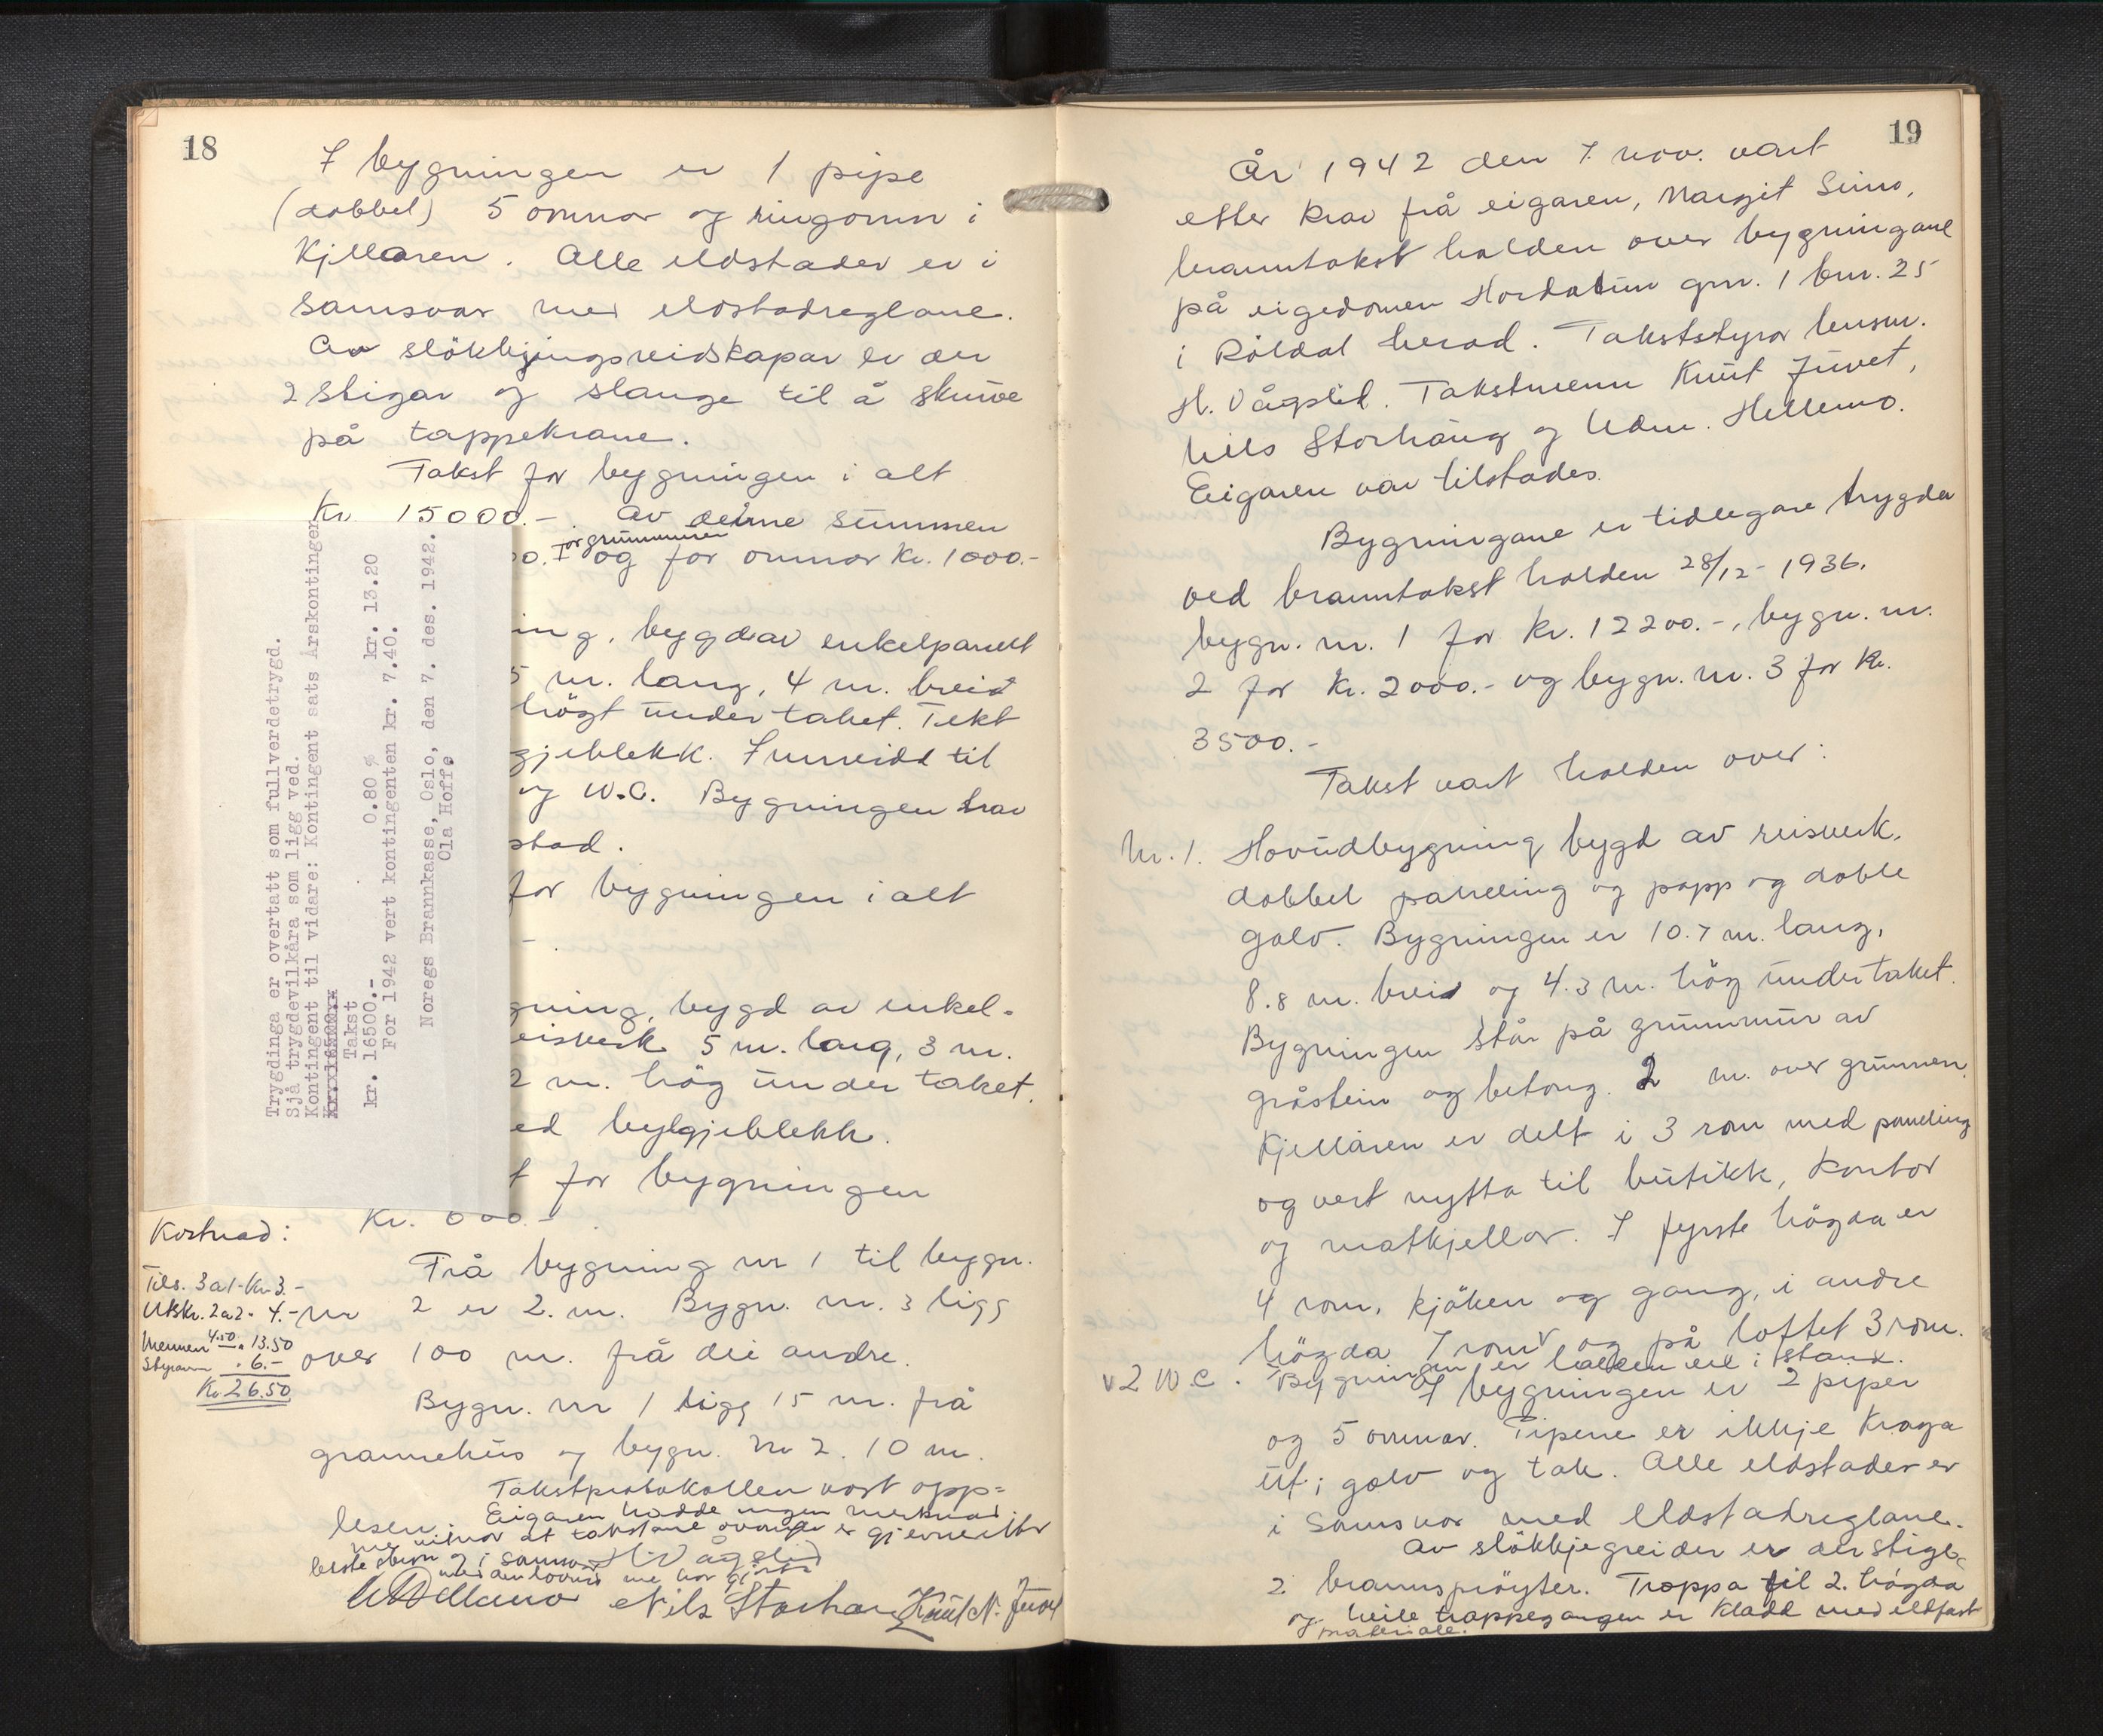 18
I bygningen er 1 pipe
(dobbel) 5 omnar og ringomn i
Kjellaren. Alle eldstader er i
samsvar med eldstadreglane.
Av slökkjingsreidskapar er der
2 stigar og slange til å skruve
på tappekrane.
Takst for bygningen i alt
Kr. 15000.- Av denne summen
for grunnmuren
00.- og for omnar Kr. 1000.-
ing, bygd av enkelpanelt
5 m. lang, 4 m. breid
högt under taket. Tekt
gjeblekk. Innreidd til
og W.C. Bygningen har
stad.
for bygningen i alt
-
gning, bygd av enkel-
eisverk 5 m. lang, 3 m.
2 m. hög under taket.
ed bylgjeblekk.
t for bygningen
Kr. 600.-
Frå bygning nr 1 til bygn.
nr 2 er 2. m. Bygn. nr. 3 ligg
over 100 m. frå dei andre.
Bygn. nr 1 ligg 15 m. frå
grannehus og bygn. nr 2. 10 m.
Takstprotokollen vart opp-
lesen. Eigaren hadde ingen merknad
me vitnar at takstane ovanfor er gjevne etter
beste skjøn og i samsvar
med den lovnad me har gjort
H. Vågslid
Nils Storhaug Knut N. Juvet
Kostnad:
Tils. 3 a 1 - Kr. 3.-
Utskr. 2 a 2 - 4.-
Mennen 4.50 - 13.50
Styraren - 6.-
Kr. 26.50
Trygdinga er overtatt som fullverdetrygd.
Sjå trygdevilkåra som ligg ved.
Kontingent til vidare: Kontingent sats Årskontingent
Kr. 16500.-
Takst
kr. 16500.- 0.80 % kr. 13.20
For 1942 vert kontingenten kr. 7.40.
Noregs Brannkasse, Oslo, den 7. des. 1942.
Ola Hoffe
19
År 1942 den 7. nov. vart
etter krav frå eigaren, Margit Seim,
branntakst halden over bygningane
på eigedomen Hordatun gnr. 1 bnr. 25
i Röldal herad. Takststyrar lensm.
H. Vågslid. Takstmenn Knut Juvet,
Nils Storhaug og Udm. Hellemo.
Eigaren var tilstades.
Bygningane er tidlegare trygda
ved branntakst halden 28/12- 1936.
bygn. nr. 1 for Kr. 12200.-, bygn. nr.
2 for Kr. 2000.- og bygn. nr. 3 for Kr.
3500.-
Takst vart halden over:
Nr. 1. Hovudbygning bygd av reisverk,
dobbel paneling og papp og doble
golv. Bygningen er 10.7 m. lang,
8.8 m. breid og 4.3 m. hög under taket.
Bygningen står på grunnmur av
gråstein og betong. 2 m. over grunnen.
Kjellaren er delt i 3 rom med paneling
og vert nytta til butikk, kontor
og matkjellar. I fyrste högda er
4 rom, kjöken og gang, i andre
högda 7 rom v og på loftet 3 rom.
v 2 W C. Bygningen er halden vel i stand.
I bygningen er 2 piper
og 5 omnar. Pipene er ikkje kraga
ut i golv og tak. Alle eldstader er
i samsvar med eldstadreglane.
Av slökkjegreider er der stige,
2 brannspröyter. Trappa til 2. högda
og heile trappegangen er kladd med eldfast
materiale.